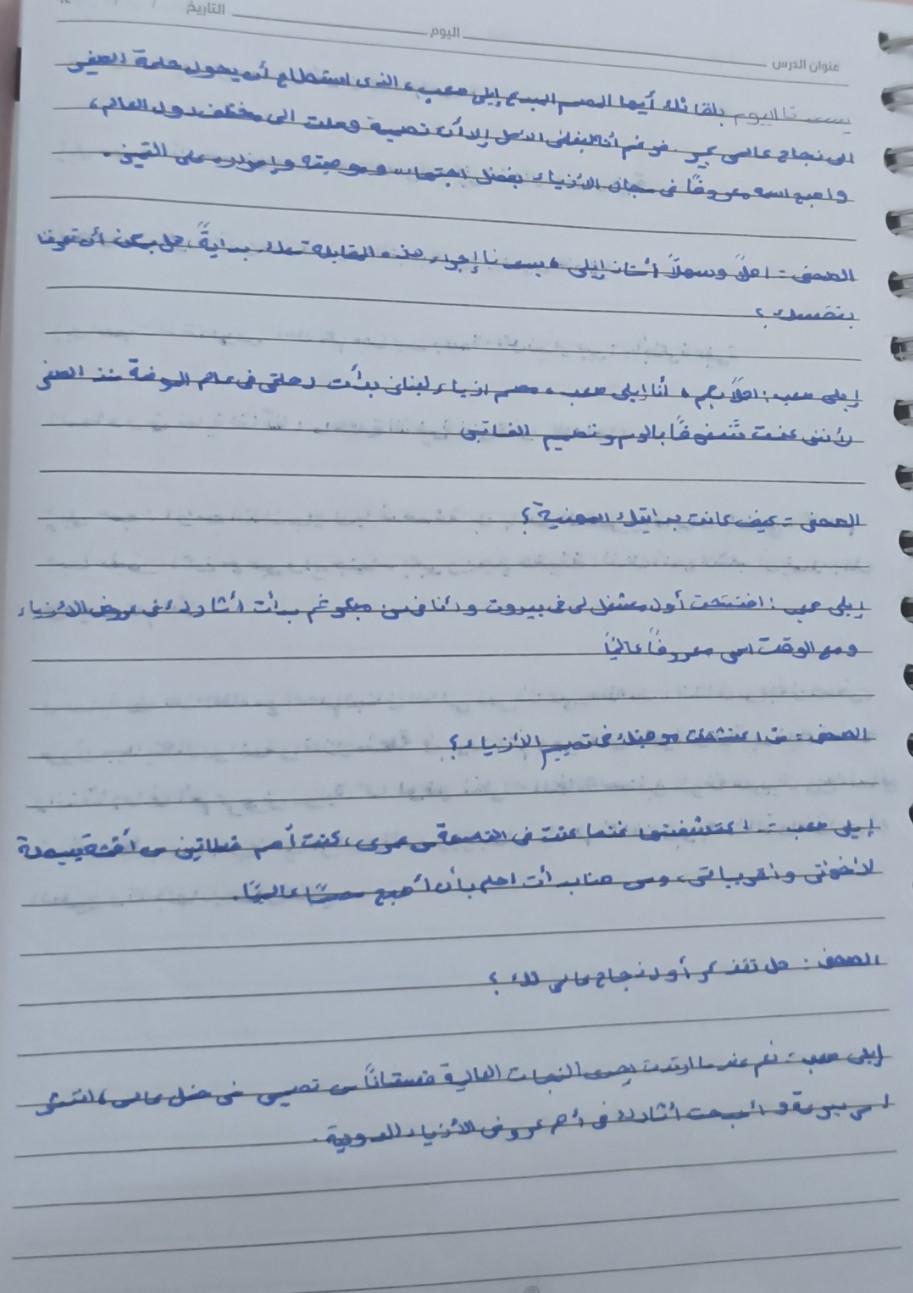 التاريخ
اليوم
عنوان الدرس
يسعدنا اليوم بلقائك أيها المصمم المبدع إيلي صعب، الذي استطاع أن يحول حلمه الصغير
الى نجاح عالمي كبير. فرغم أنا لبناني الأصل إلا أن تصميمه وصلت الى مختلف دول العالم،
واصبح اسمه معروفًا في مجال الأزياء بفضل اجتهاده وموهبته وإصراره على التميز.
الصحفي: اهلاً وسهلاً أستاذ إيلي، يسعدنا إجراء هذه المقابلة معك بدايةً، هل يمكن أن تعرفنا
بنفسك؟
إيلي صعب: اهلاً بكم، أنا إيلي صعب، مصمم ازياء لبناني بدأت رحلتي في عالم الموضة منذ الصغر
لأنني كنت شغوفًا بالرسم وتصميم الفساتين
الصحفي: كيف كانت بدايتك المهنية؟
إيلي صعب: افتتحت أول مشغل لي في بيروت وانا في سن مبكر ثم بدأت أشارك في عروض الأزياء
ومع الوقت اسمي معروفًا عالميًا
الصحفي: متى اكتشفت موهبتك في تصميم الأزياء؟
إيلي صعب: اكتشفتها عندما كنت في التاسعة من عمري، كنت أصمم فساتين من أقمشة بسيطة
لأخواتي وقريباتي، ومن هنا بدأت احلم بأن أصبح مصممًا عالميًا.
الصحفي: هل تتذكر أول نجاح عالمي لك؟
إيلي صعب: نعم عندما ارتدت إحدى النجمات العالمية فستانًا من تصميمي في حفل عالمي، انتشر
اسمي بسرعة واصبحت أشارك في أهم عروض الأزياء الدولية.